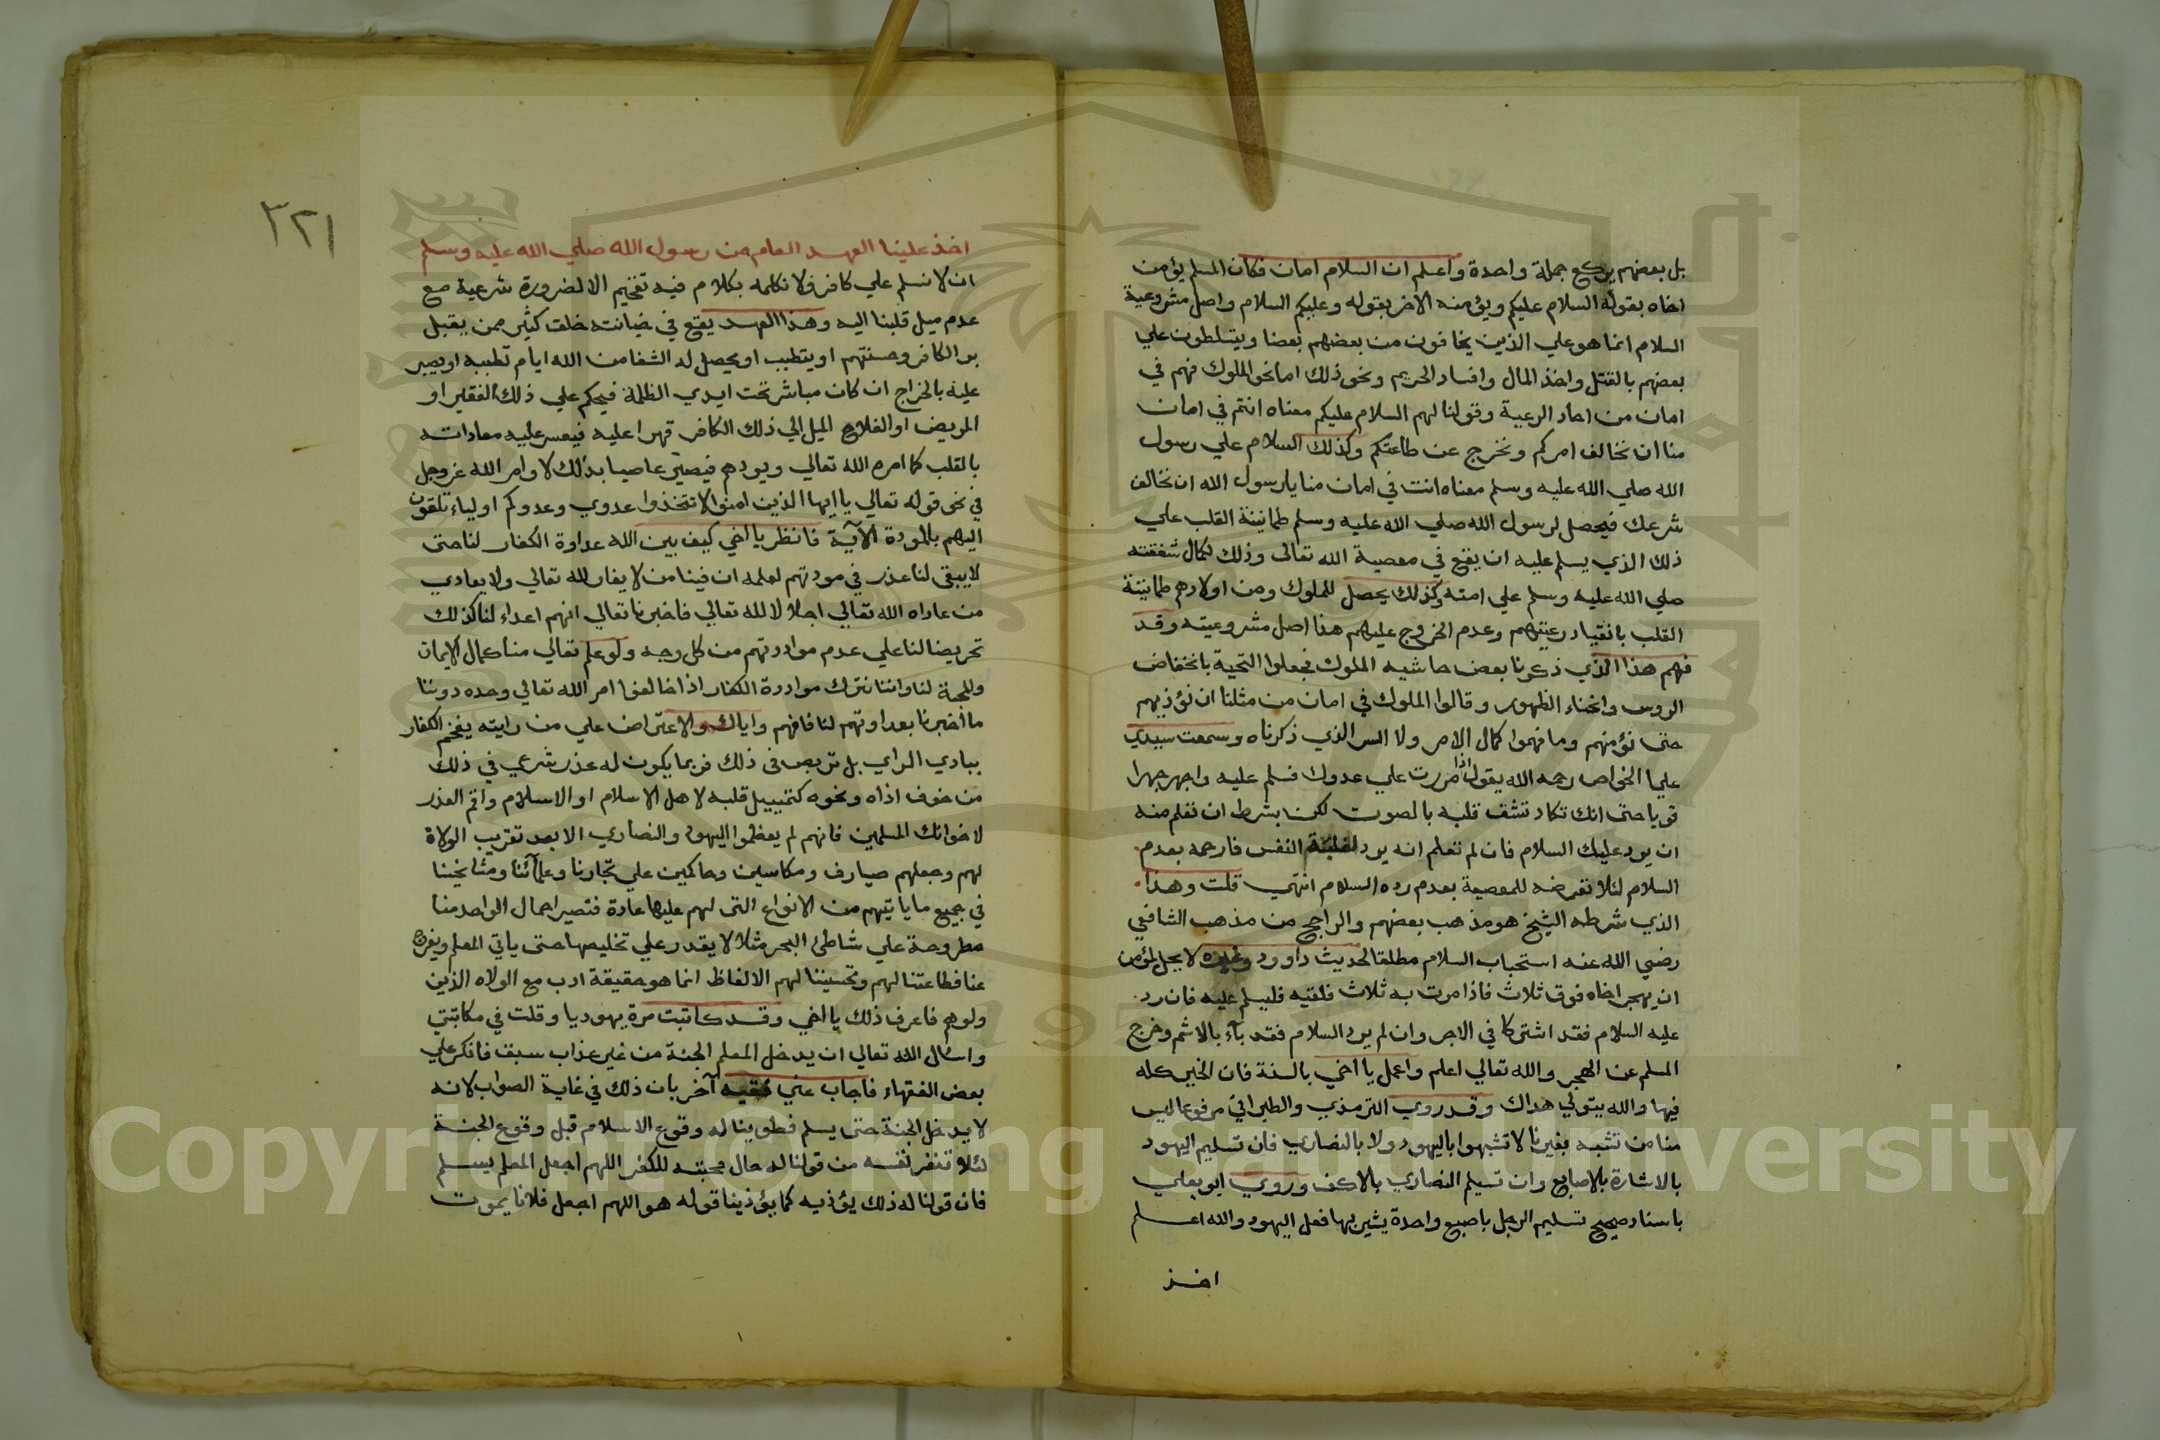 بل بعضهم يركع جملة واحدة واعلم ان السلام امان فكان المسلم يؤمن
اخاه بقوله السلام عليكم ويؤمنه الاخر بقوله وعليكم السلام واصل مشروعية
السلام انما هو علي الذين يخافون من بعضهم بعضا ويتسلطون علي
بعضهم بالقتل واخذ المال وافساد الحريم ونحو ذلك اما نحو الملوك فهم في
امان من احاد الرعية وقولنا لهم السلام عليكم معناه انتم في امان
منا ان نخالف امركم ونخرج عن طاعتكم وكذلك السلام علي رسول
الله صلي الله عليه وسلم معناه انت في امان منا يا رسول الله ان نخالف
شرعك فيحصل لرسول الله صلي الله عليه وسلم طمانينة القلب علي
ذلك الذي يسلم عليه ان يقع في معصية الله تعالى وذلك لكمال شفقته
صلي الله عليه وسلم علي امته وكذلك يحصل للملوك ومن اولادهم طمانينة
القلب بانقياد رعيتهم وعدم الخروج عليهم هذا اصل مشروعيته وقد
فهم هذا الذي ذكرنا بعض حاشيه الملوك فجعلوا التحية بانخفاض
الروس وانحناء الظهور وقالوا الملوك في امان من مثلنا ان نؤذيهم
حتى نؤمنهم وما فهموا كمال الامر ولا السر الذي ذكرناه وسمعت سيدي
عليا الخواص رحمه الله يقول اذا مررت علي عدوك فسلم عليه واجهر جهرا
قويا حتى انك تكاد تشف قلبه بالصوت لكن بشرط ان تعلم منه
ان يرد عليك السلام فان لم تعلم انه يرد لغلبة النفس فارحمه بعدم
السلام لئلا تعرضه للمعصية بعدم رده السلام انتهي قلت وهذا
الذي شرطه الشيخ هو مذهب بعضهم والراجح من مذهب الشافعي
رضي الله عنه استحباب السلام مطلقا لحديث داوود وغيره لا يحل لمؤمن
ان يهجر اخاه فوق ثلاث فاذا مرت به ثلاث فلقيه فليسلم عليه فان رد
عليه السلام فقد اشتركا في الاجر وان لم يرد السلام فقد بآء بالاثم وخرج
المسلم عن الهجر والله تعالي اعلم واعمل يا اخي بالسنة فان الخير كله
فيها والله يتولي هداك وقد روي الترمذي والطبراني مرفوعا ليس
منا من تشبه بغيرنا لا تشبهوا باليهود ولا بالنصاري فان تسليم اليهود
بالاشارة بالاصابع وان تسليم النصاري بالاكف وروي ابو يعلي
باسناد صحيح تسليم الرجل باصبع واحدة يشير بها فعل اليهود والله اعلم
اخذ
٣٢١
اخذ علينا العهد العام من رسول الله صلي الله عليه وسلم
ان لا نسلم علي كافر ولا نكلمه بكلام فيه تفخيم الا لضرورة شرعية مع
عدم ميل قلبنا اليه وهذا العهد يقع في خيانته خلق كثير ممن يقبل
بر الكافر وحسنتهم او يتطيب او يحصل له الشفا من الله ايام تطببه او يصبر
عليه بالخراج ان كان مباشر تحت ايدي الظلمة فيحكم علي ذلك الفقير او
المريض او الفلاح الميل الي ذلك الكافر قهرا عليه فيعسر عليه معاداته
بالقلب كما امره الله تعالي ويودهم فيصير عاصيا بذلك لاوامر الله عز وجل
في نحو قوله تعالي يا ايها الذين امنوا لا تتخذوا عدوي وعدوكم اولياء تلقون
اليهم بالمودة الآية فانظر يا اخي كيف بين الله عداوة الكفار لنا حتى
لا يبقى لنا عذر في مودتهم لعلمه ان فينا من لا يغار لله تعالي ولا يعادي
من عاداه الله تعالي اجلالا لله تعالي فاخبرنا تعالي انهم اعداء لنا كذلك
تحريضا لنا علي عدم موادتهم من كل وجه ولو علم تعالي منا كمال الايمان
والمحبة لنا واننا نترك موادة الكفار اذا خالفوا امر الله تعالي وحده دوننا
ما اخبرنا بعداوتهم لنا فافهم واياك والاعتراض علي من رايته يفخم الكفار
ببادي الراي بل تربص في ذلك فربما يكون له عذر شرعي في ذلك
من خوف اذاه ونحوه كتمييل قلبه لاهل الاسلام او الاسلام واقم العذر
لاخوانك المسلمين فانهم لم يعظموا اليهود والنصاري الا بعد تقريب الولاة
لهم وجعلهم صيارف ومكاسين وحاكمين علي تجارنا وعلمآئنا ومشايخنا
في جميع ما ياتيهم من الانواع التى لهم عليها عادة فتصير احمال الواحد منا
مطروحة علي شاطئ البحر مثلا لا يقدر علي تخليصها حتى ياتي المعلم ويفرج
عنا فطاعتنا لهم وتحسيننا لهم الالفاظ انما هو حقيقة ادب مع الولاه الذين
ولوهم فاعرف ذلك يا اخي وقد كاتبت مرة يهوديا وقلت في مكاتبتي
واسال الله تعالي ان يدخل المعلم الجنة من غير عذاب سبق فانكر علي
بعض الفقهاء فاجاب عني فقيه آخر بان ذلك في غاية الصواب لانه
لا يدخل الجنة حتى يسلم فطوينا له وقوع الاسلام قبل وقوع الجنة
لئلا تنفر نفسه من قولنا له حال محبته للكفر اللهم اجعل المعلم يسلم
فان قولنا له ذلك يؤذيه كما يؤذينا قوله هو اللهم اجعل فلانا يموت
Copyright © King Saud University